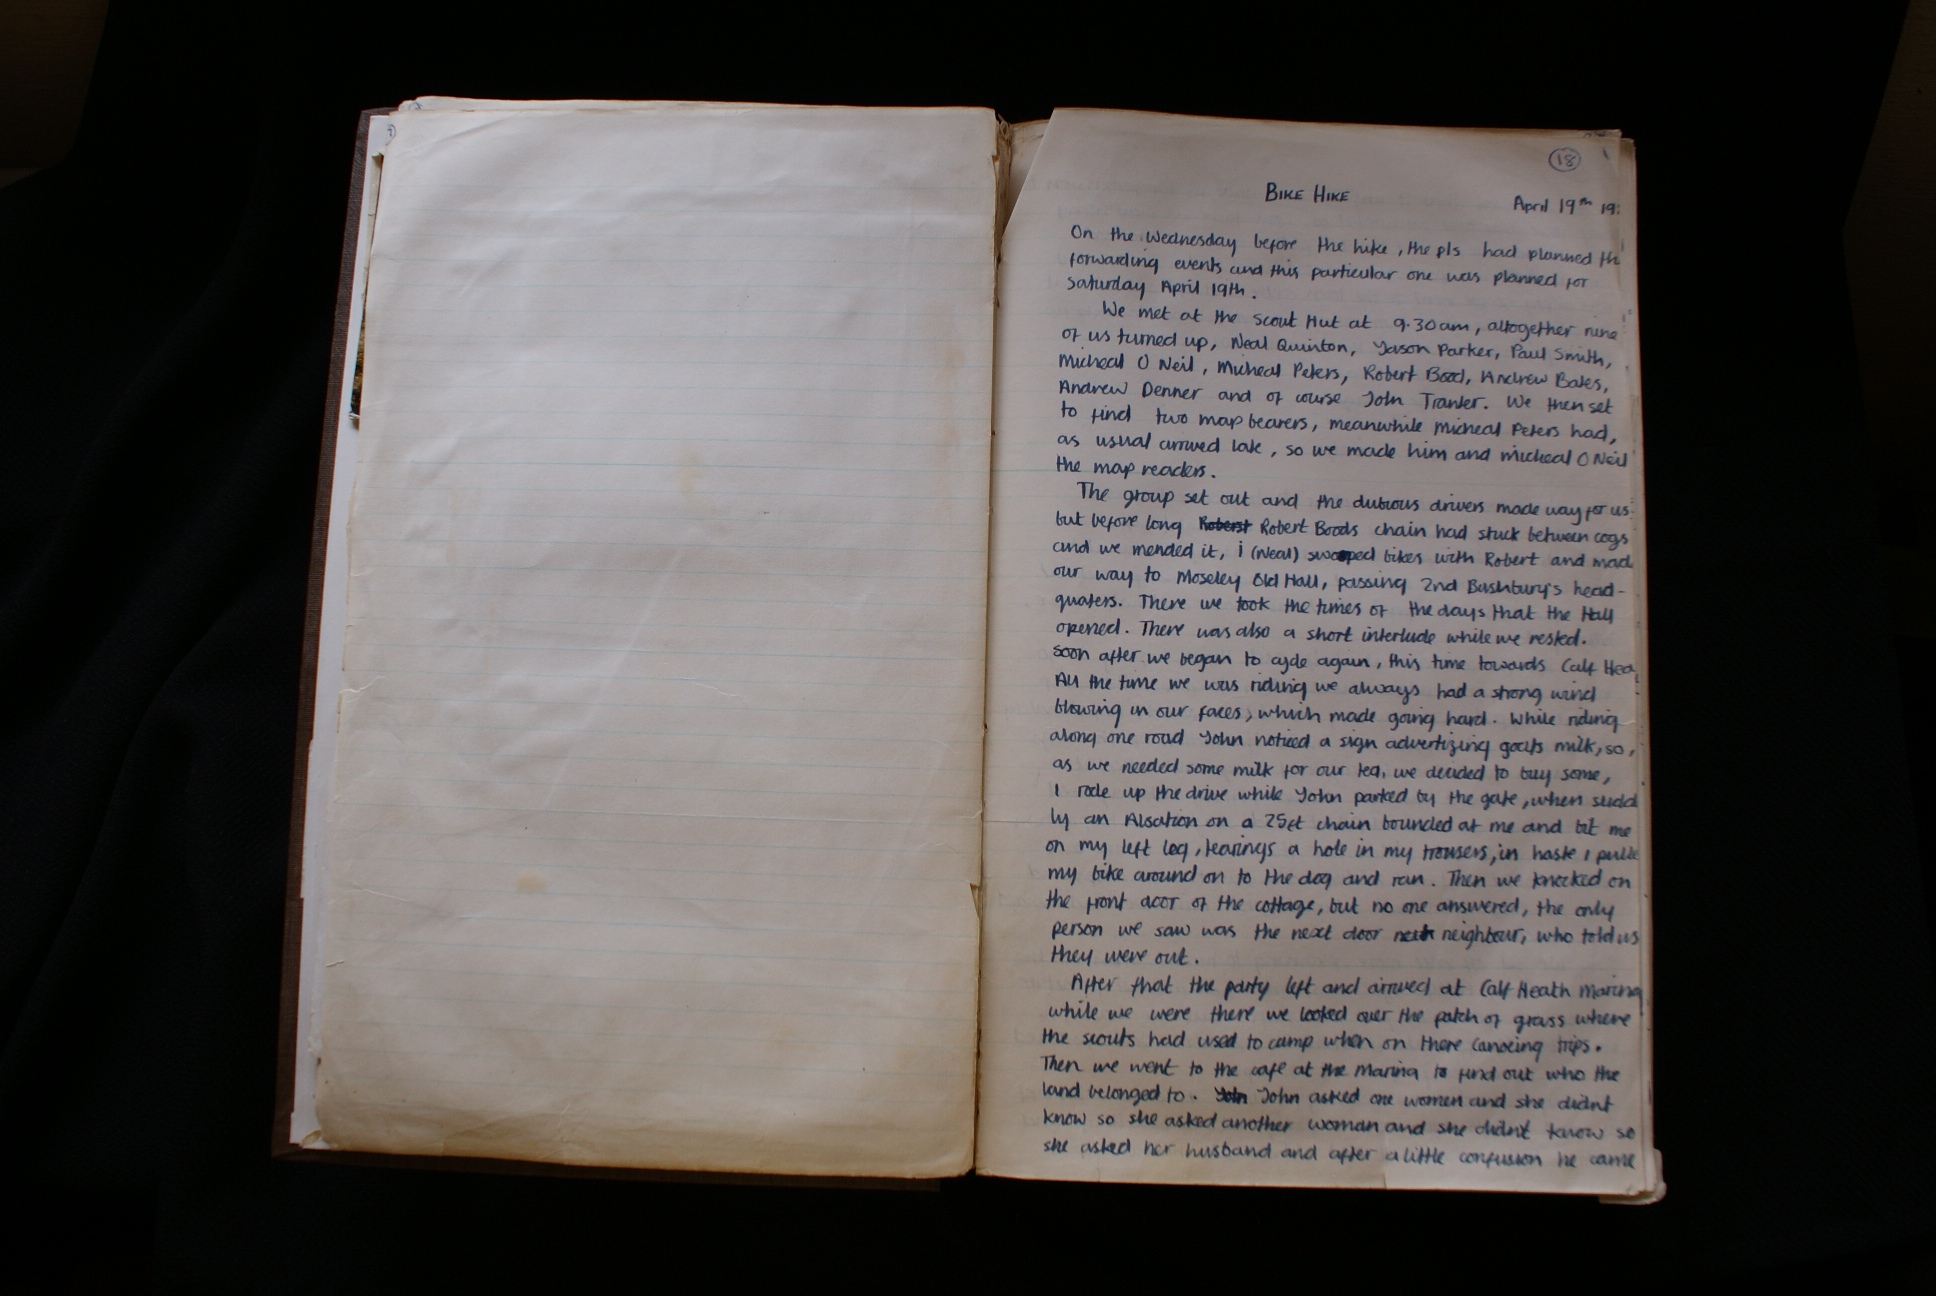 18
BIKE HIKE
April 19th 19
On the Wednesday before the hike, the pls had planned th
forwarding events and this particular one was planned for
Saturday April 19th.
We met at the Scout Hut at 9.30am, altogether nine
of us turned up, Neal Quinton, Jason Parker, Paul Smith,
Micheal O Neil, Micheal Peters, Robert Bood, Andrew Bates,
Andrew Denner and of course John Tranter. We then set
to find two map bearers, meanwhile Micheal Peters had,
as usual arrived late, so we made him and Micheal O Neil
the map readers.
The group set out and the dubious drivers made way for us
but before long Roberst Robert Boods chain had stuck between cogs
and we mended it, i (Neal) swopped bikes with Robert and mad
our way to Moseley Old Hall, passing 2nd Bushbury's head-
quaters. There we took the times of the days that the Hall
opened. There was also a short interlude while we rested.
Soon after we began to cycle again, this time towards Calf Hea
All the time we was riding we always had a strong wind
blowing in our faces, which made going hard. While riding
along one road John noticed a sign advertizing goats milk, so,
as we needed some milk for our tea, we decided to buy some,
I rode up the drive while John parked by the gate, when sudd
ly an Alsation on a 25ft chain bounded at me and bit me
on my left leg, tearings a hole in my trousers, in haste I pulle
my bike around on to the dog and ran. Then we knocked on
the front door of the cottage, but no one answered, the only
person we saw was the next door neighbour, who told us
they were out.
After that the party left and arrived at Calf Heath Marina
while we were there we looked over the patch of grass where
the scouts had used to camp when on there Canoeing trips.
Then we went to the cafe at the Marina to find out who the
land belonged to. John John asked one women and she didnt
know so she asked another woman and she didn't know so
she asked her husband and after a little confusion he came